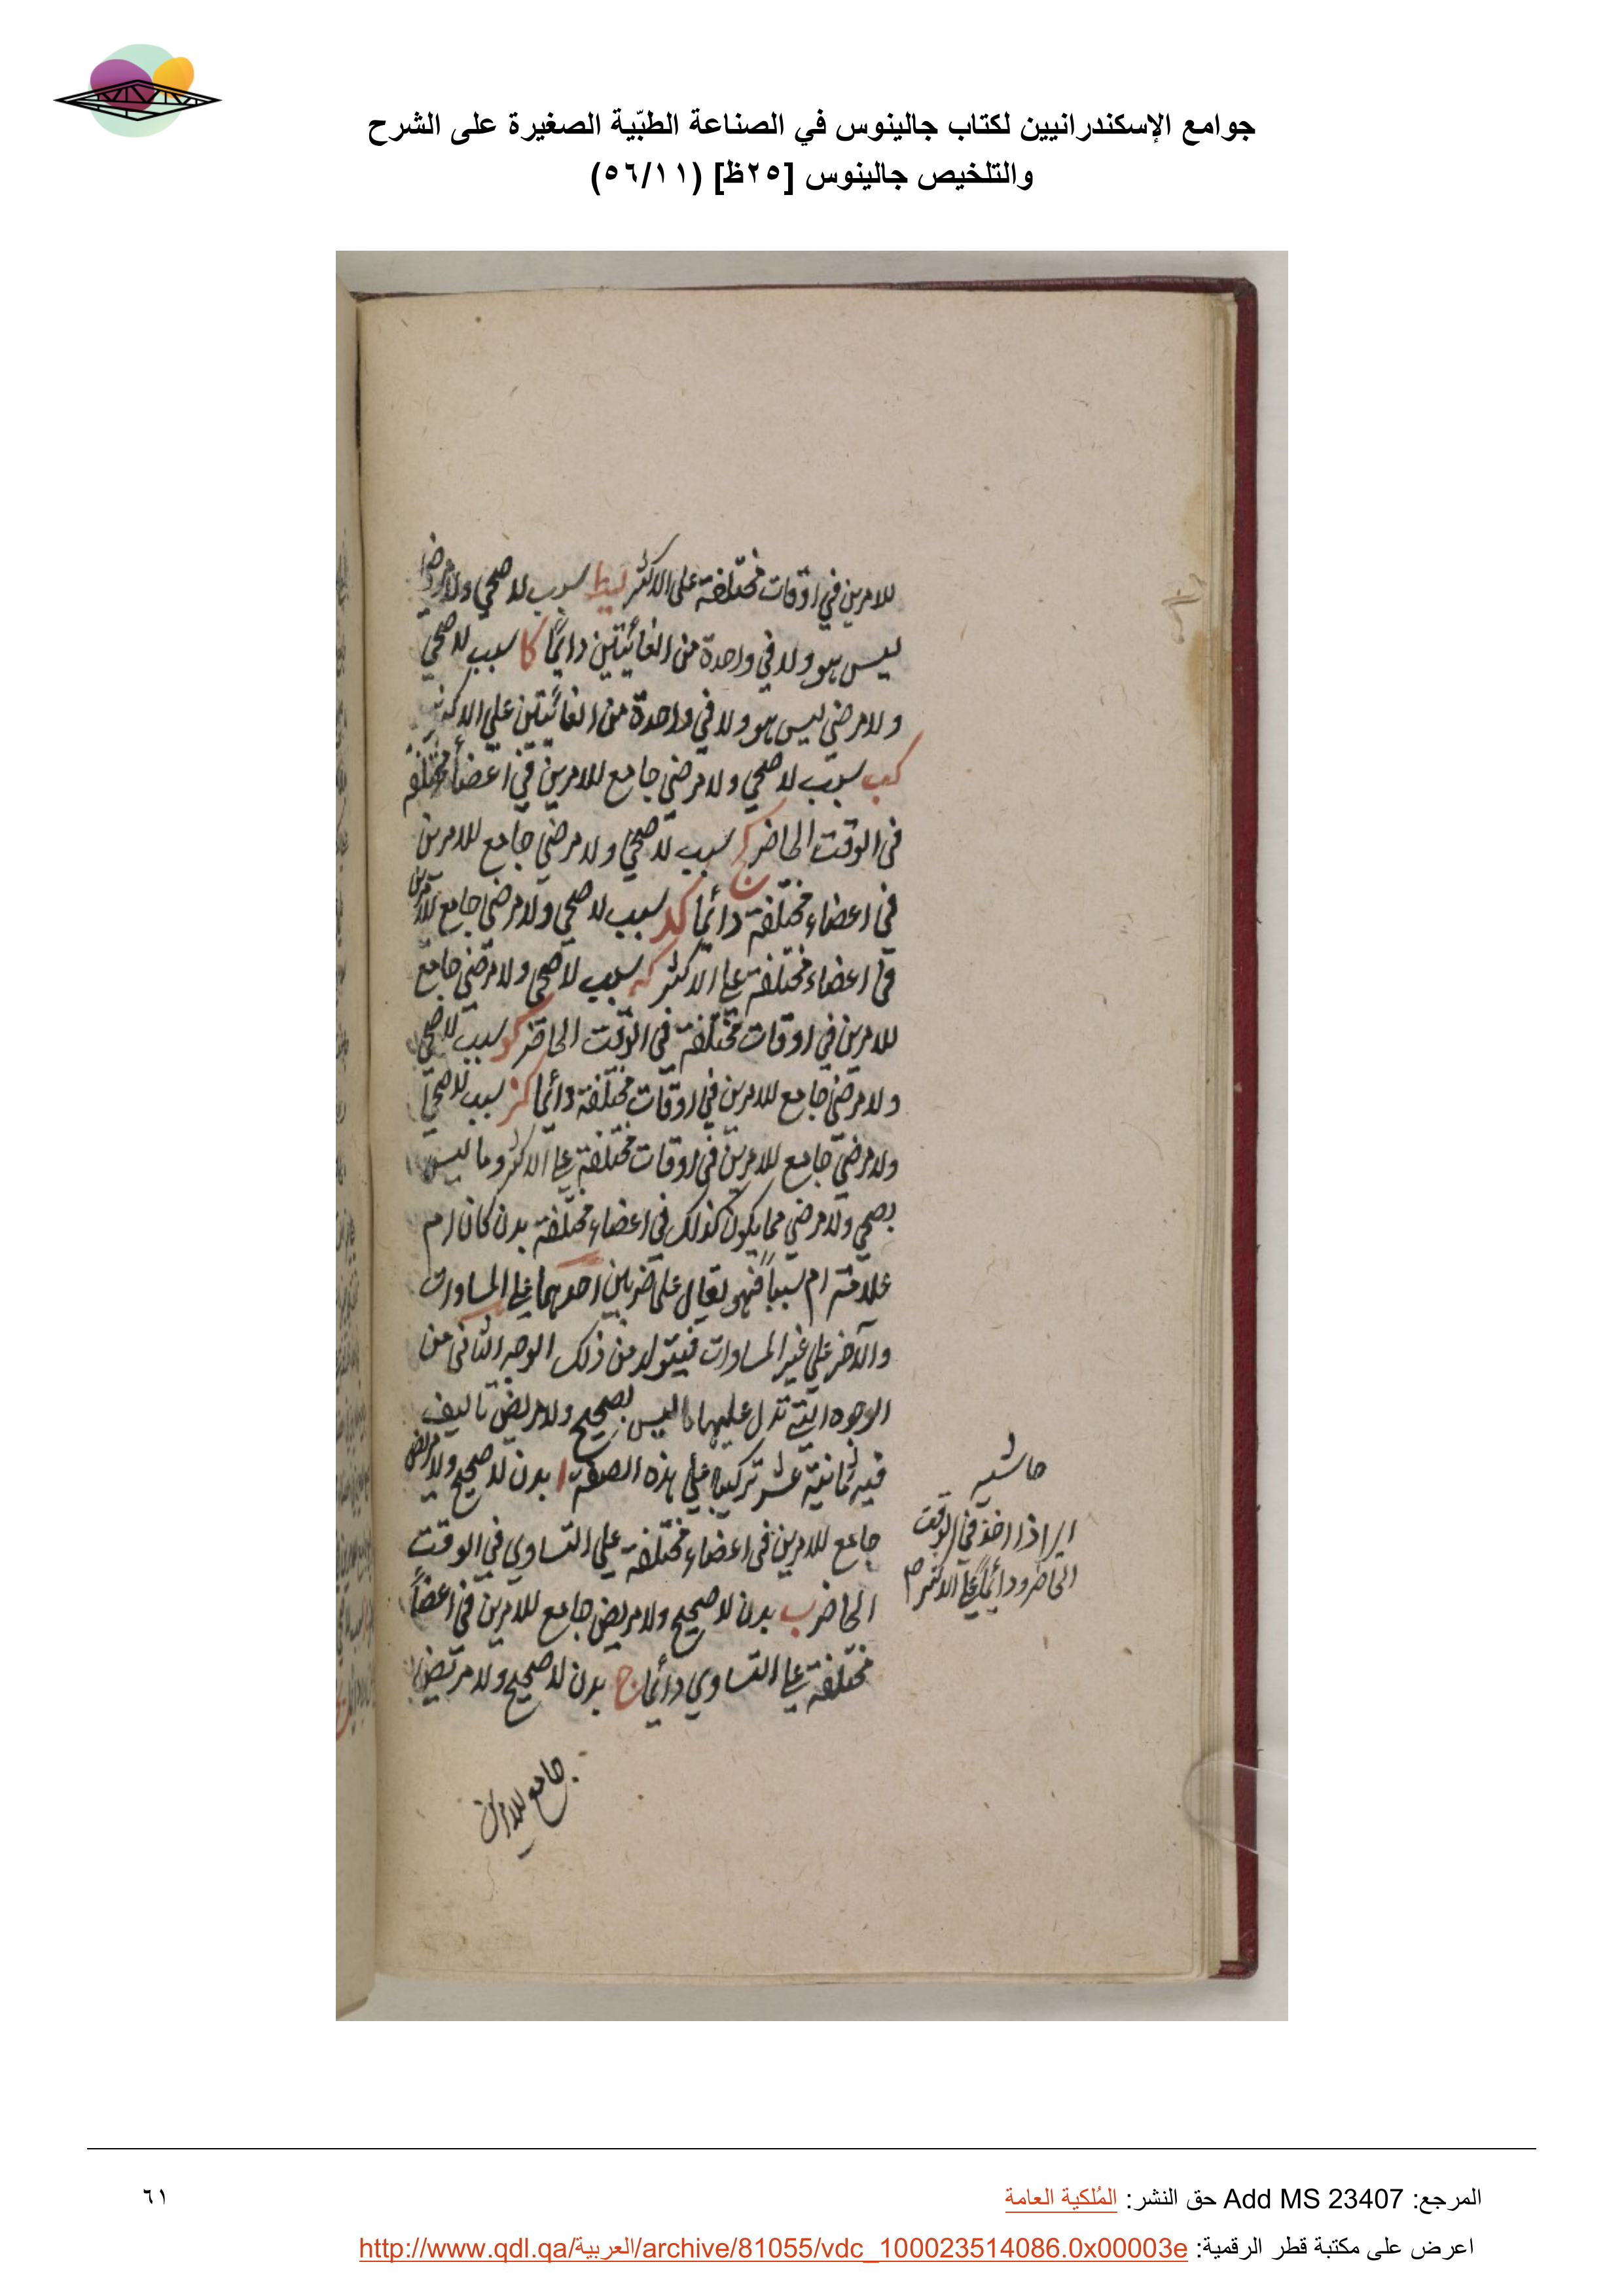 جوامع الإسكندرانيين لكتاب جالينوس في الصناعة الطبّية الصغيرة على الشرح
والتلخيص جالينوس [٢٥ظ] (٥٦/١١)
للامرين في اوقات مختلفة على الاكثر سبب لا صحي ولا مرضي
ليس هو ولا في واحدة من الغائيتين دائما كا سبب لا صحي
ولا مرضي ليس هو ولا في واحدة من الغائيتين على الاكثر
كب سبب لا صحي ولا مرضي جامع للامرين في اعضاء مختلفة
في الوقت الحاضر كج سبب لا صحي ولا مرضي جامع للامرين
في اعضاء مختلفة دائما كد سبب لا صحي ولا مرضي جامع للامرين
في اعضاء مختلفة على الاكثر كه سبب لا صحي ولا مرضي جامع
للامرين في اوقات مختلفة في الوقت الحاضر كو سبب لا صحي
ولا مرضي جامع للامرين في اوقات مختلفة دائما كز سبب لا صحي
ولا مرضي جامع للامرين في اوقات مختلفة على الاكثر وما ليس
بصحي ولا مرضي مما يكون كذلك في اعضاء مختلفة بدن كان ام
علامة ام سببا فهو يقال على ضربين احدهما على المساوات
والآخر على غير المساوات فيتولد من ذلك الوجه الثاني من
الوجوه التي تدل عليها ما ليس بصحيح ولا مريض تاليف
فيه ثمانية عشر تركيبا على هذه الصفة ا بدن لا صحيح ولا مريض
جامع للامرين في اعضاء مختلفة على التساوي في الوقت
الحاضر ب بدن لا صحيح ولا مريض جامع للامرين في اعضاء
مختلفة على التساوي دائما ج بدن لا صحيح ولا مريض
جامع للامرين
حاشية
اذا اخذ في الوقت
الحاضر ودائما على الاكثر
المرجع: Add MS 23407 حق النشر: المُلكية العامة
٦١
اعرض على مكتبة قطر الرقمية: http://www.qdl.qa/العربية/archive/81055/vdc_100023514086.0x00003e